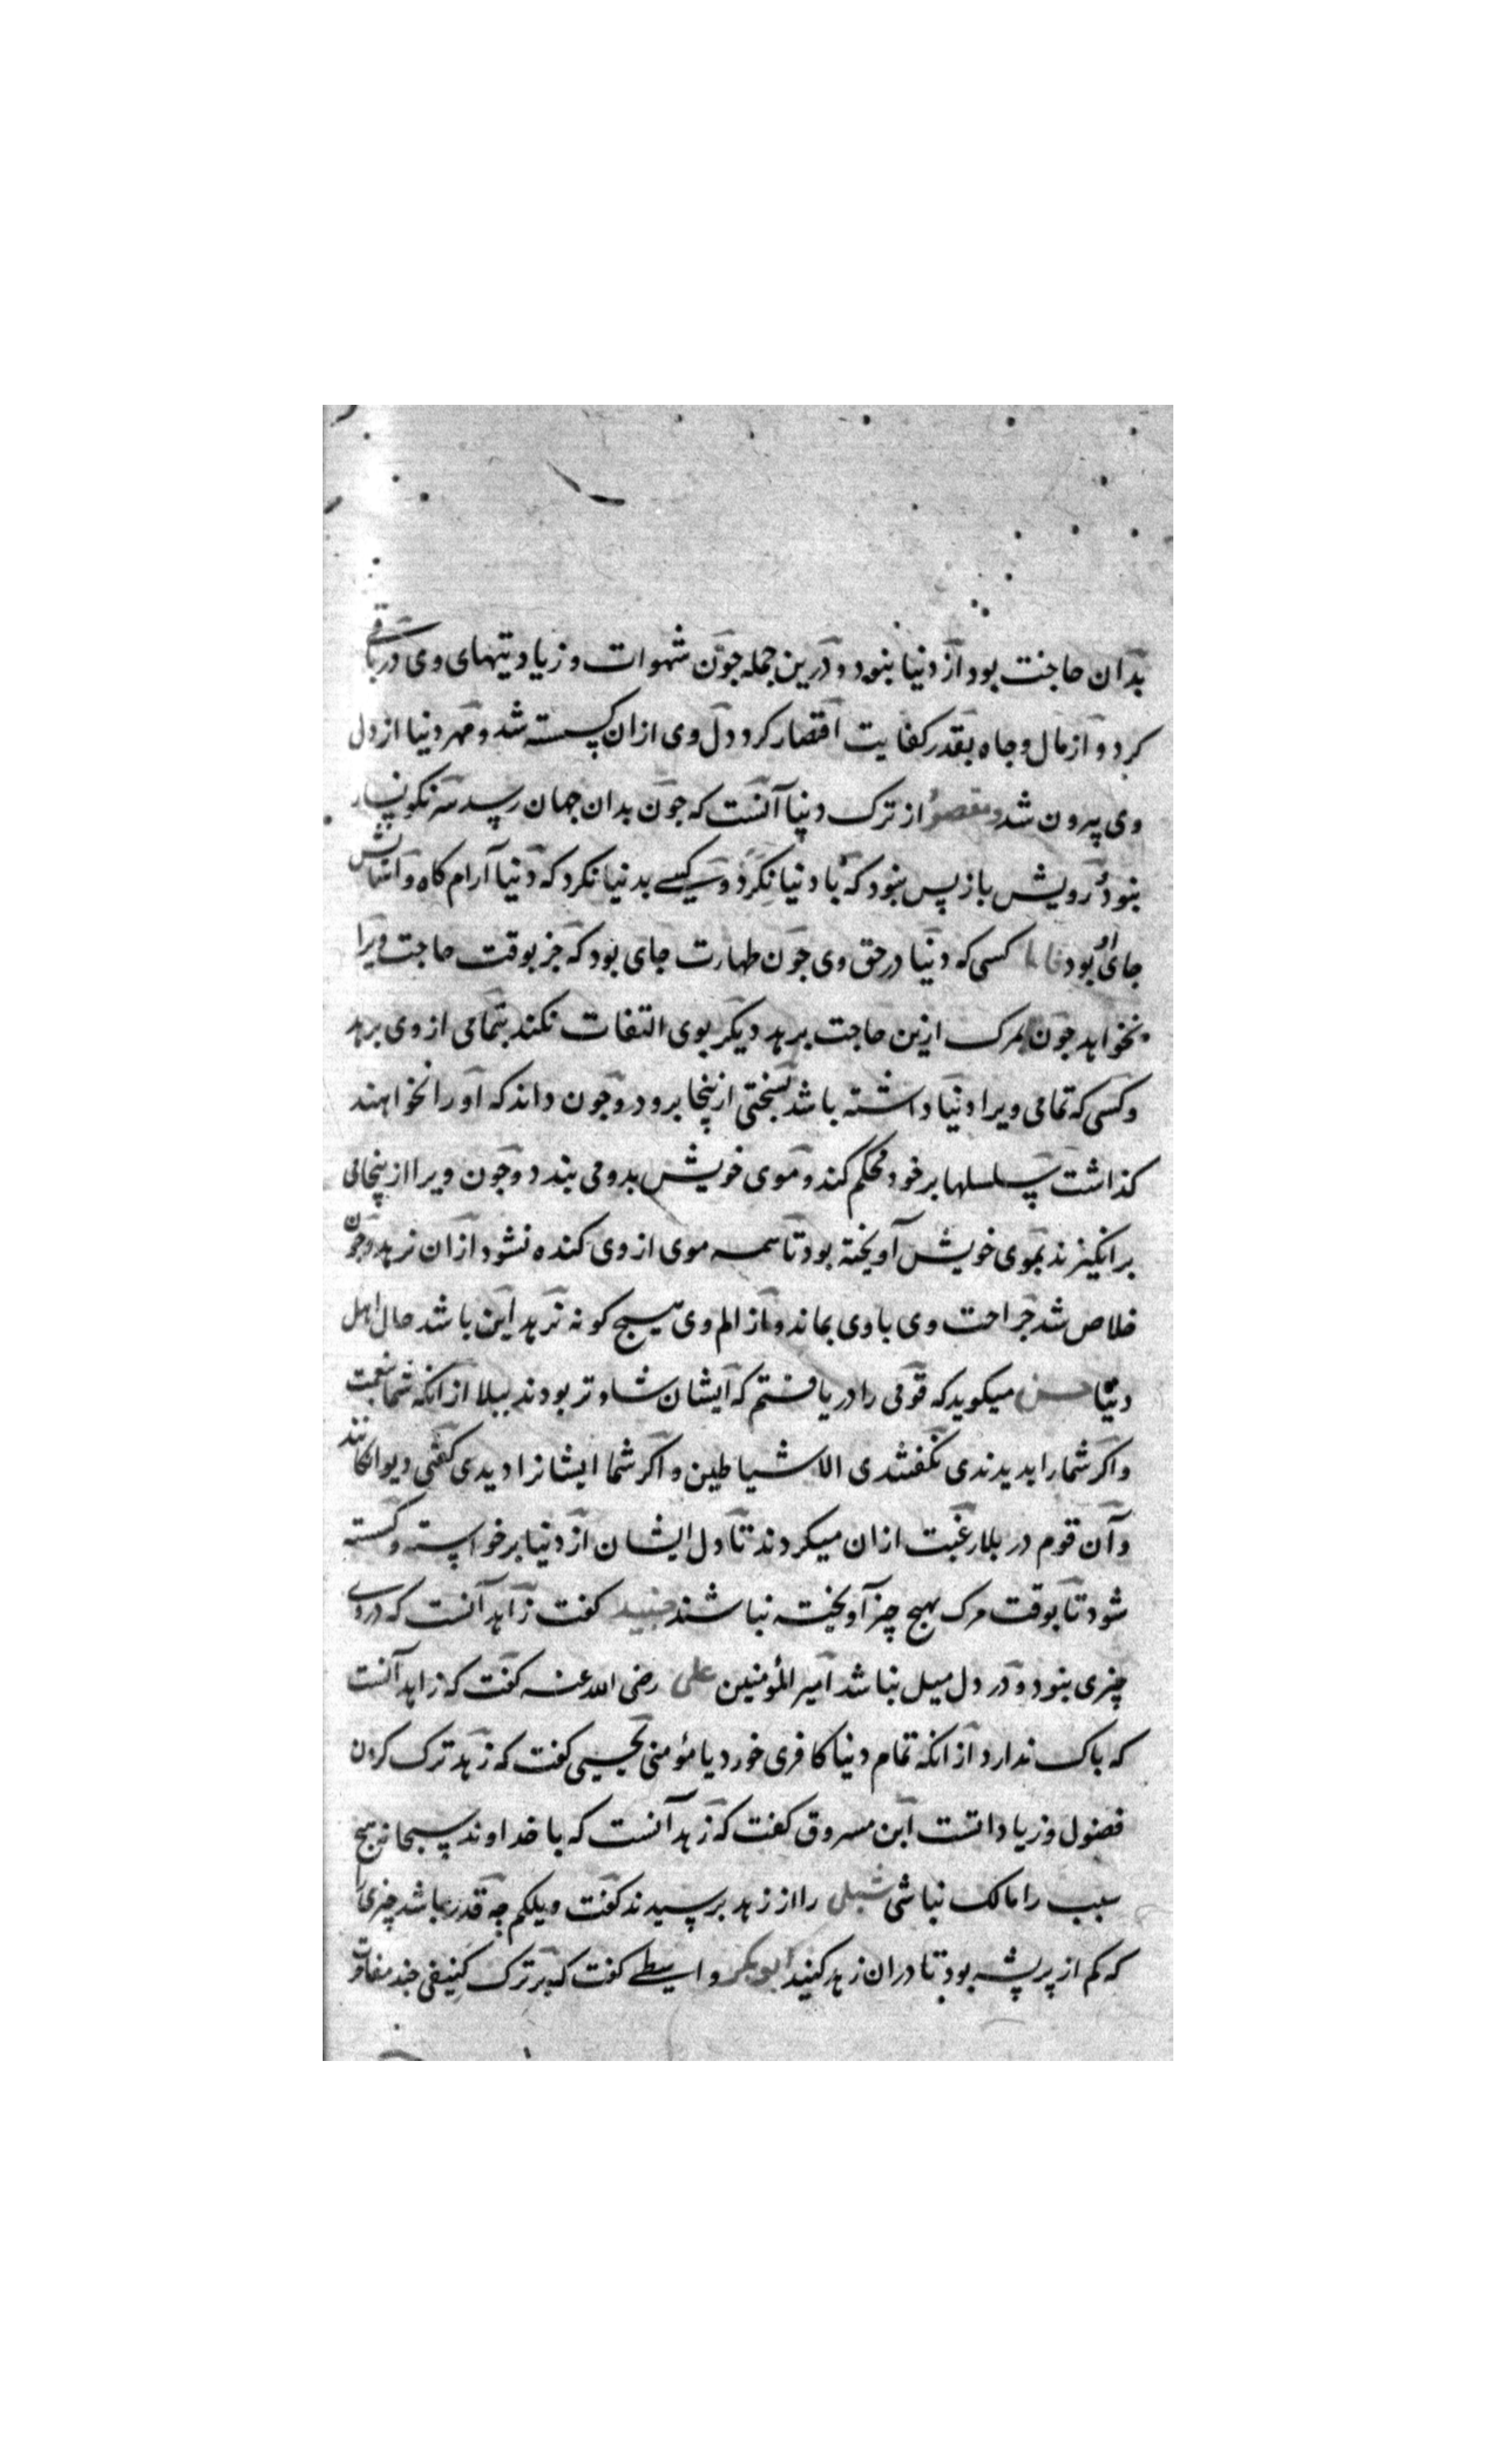 بدان حاجت بود از دنیا نبود و درین جمله جون شهوات و زیادتیهای وی در باقی
کرد و از مال و جاه بقدر کفایت اقتصار کرد دل وی ازان کسسته شد و مهر دنیا از دل
وی بیرون شد و مقصود از ترک دنیا آنست که جون بدان جهان رسد سر نکونسار
نبود و رویش باز پس نبود که با دنیا نکرد و کسی بدنیا نکرد که دنیا آرام کاه و آسایش
جای او بود فاما کسی که دنیا در حق وی جون طهارت جای بود که جز بوقت حاجت ویرا
نخواهد جون بمرک ازین حاجت برهد دیکر بوی التفات نکند بتمامی از وی برهد
و کسی که تمامی ویرا دنیا داشته باشد بسختی ازینجا برود و جون داند که او را نخواهند
کذاشت سلسلها بر خود محکم کند و موی خویش بدو می بندد و جون ویرا ازینجا می
برانکیزند بموی خویش آویخته بود تا همه موی از وی کنده نشود ازان نرهد و جون
خلاص شد جراحت وی با وی بماند و از الم وی هیج کونه نرهد این باشد حال اهل
دنیا حسن میکوید که قومی را دریافتم که ایشان شادتر بودند ببلا از انکه شما بنعمت
و اکر شما را بدیدندی نکفتندی الا شیاطین و اکر شما ایشانرا دیدی کفتی دیوانکانند
و آن قوم در بلا رغبت ازان میکردند تا دل ایشان از دنیا برخواسته و کسسته
شود تا بوقت مرک بهیج چیز آویخته نباشند جنید کفت زاهد آنست که در وی
چیزی نبود و در دل میل نباشد امیر المؤمنین علی رضی الله عنه کفت که زاهد آنست
که باک ندارد از انکه تمام دنیا کافری خورد یا مؤمنی یحیی کفت که زهد ترک کردن
فضول و زیاداتست ابن مسروق کفت که زهد آنست که با خداوند سبحانه هیج
سبب را مالک نباشی شبلی را از زهد بپرسیدند کفت ویلکم چه قدر باشد چیزی را
که کم از پر پشه بود تا دران زهد کنید ابوبکر واسطی کفت که بر ترک کنیفی جند مفاخرت